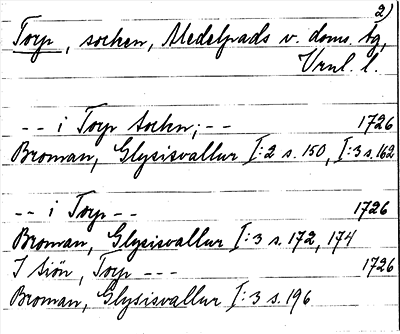 2)
Torp, socken, Medelpads v. doms. tg,
Vrnl. l.
-- i Torp Sochn; -- 1726
Broman, Glysisvallur I:2 s. 150, I:3 s. 162
-- i Torp -- 1726
Broman, Glysisvallur I:3 s. 172, 174
I Siön, Torp --- 1726
Broman, Glysisvallur I:3 s. 196